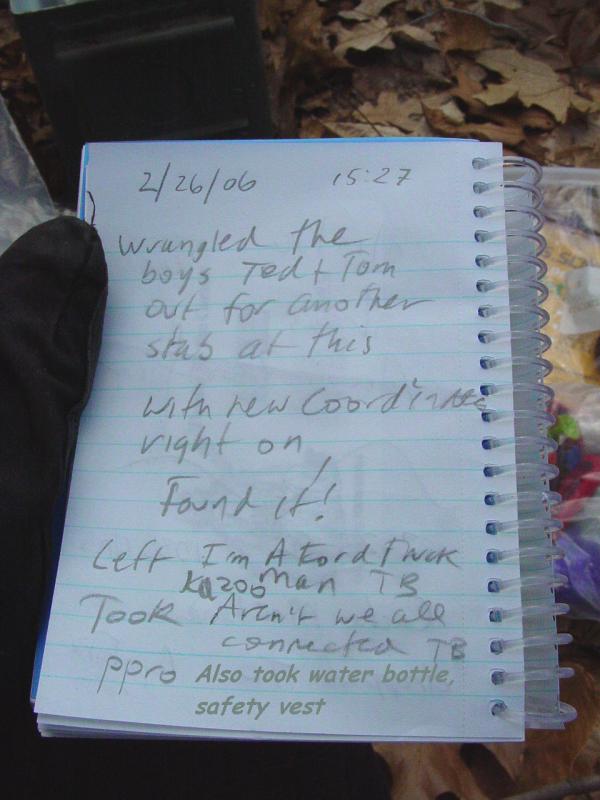 2/26/06 15:27
Wrangled the
boys Ted + Tom
out for another
stab at this
with new Coordinates
right on
Found it!
Left I'm A Ford Truck
Kazoo Man TB
Took Aren't we all
connected TB
ppro Also took water bottle,
safety vest